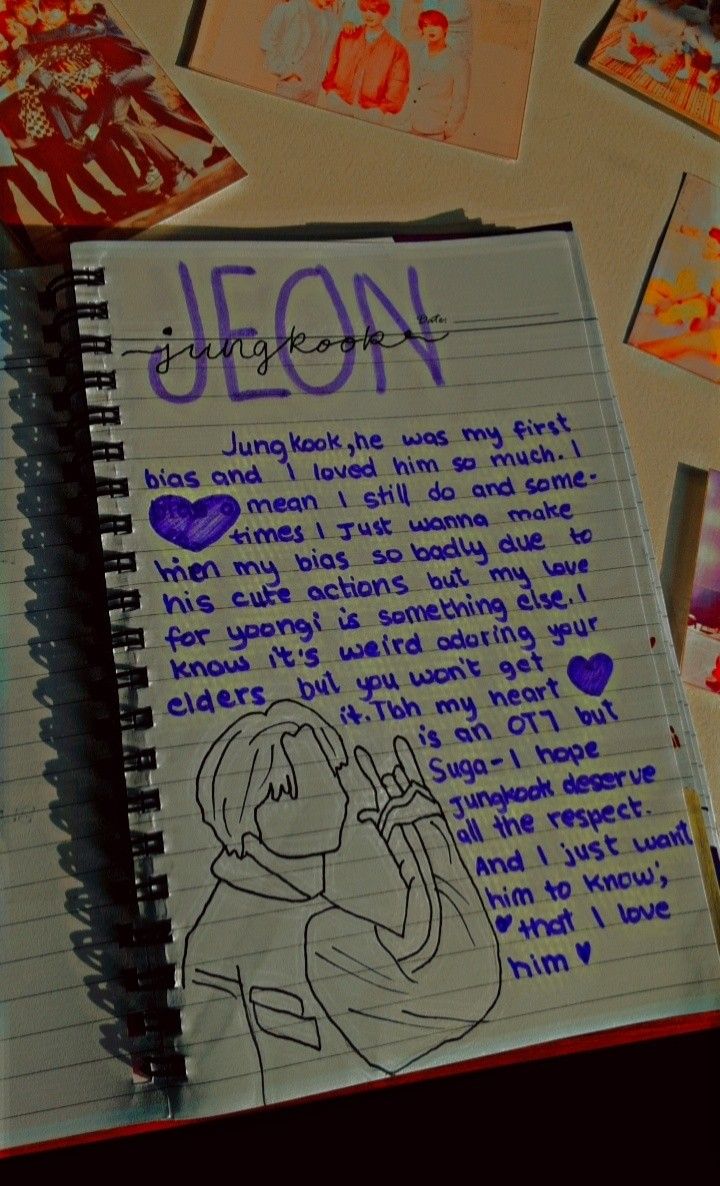 JEON
jungkook
Date:
Jungkook, he was my first
bias and I loved him so much. I
mean I still do and some-
times I Just wanna make
him my bias so badly due to
his cute actions but my love
for yoongi is something else. I
know it's weird adoring your
elders but you won't get
it. Tbh my heart
is an OT7 but
Suga - I hope
jungkook deserve
all the respect.
And I just want
him to know;
that I love
him